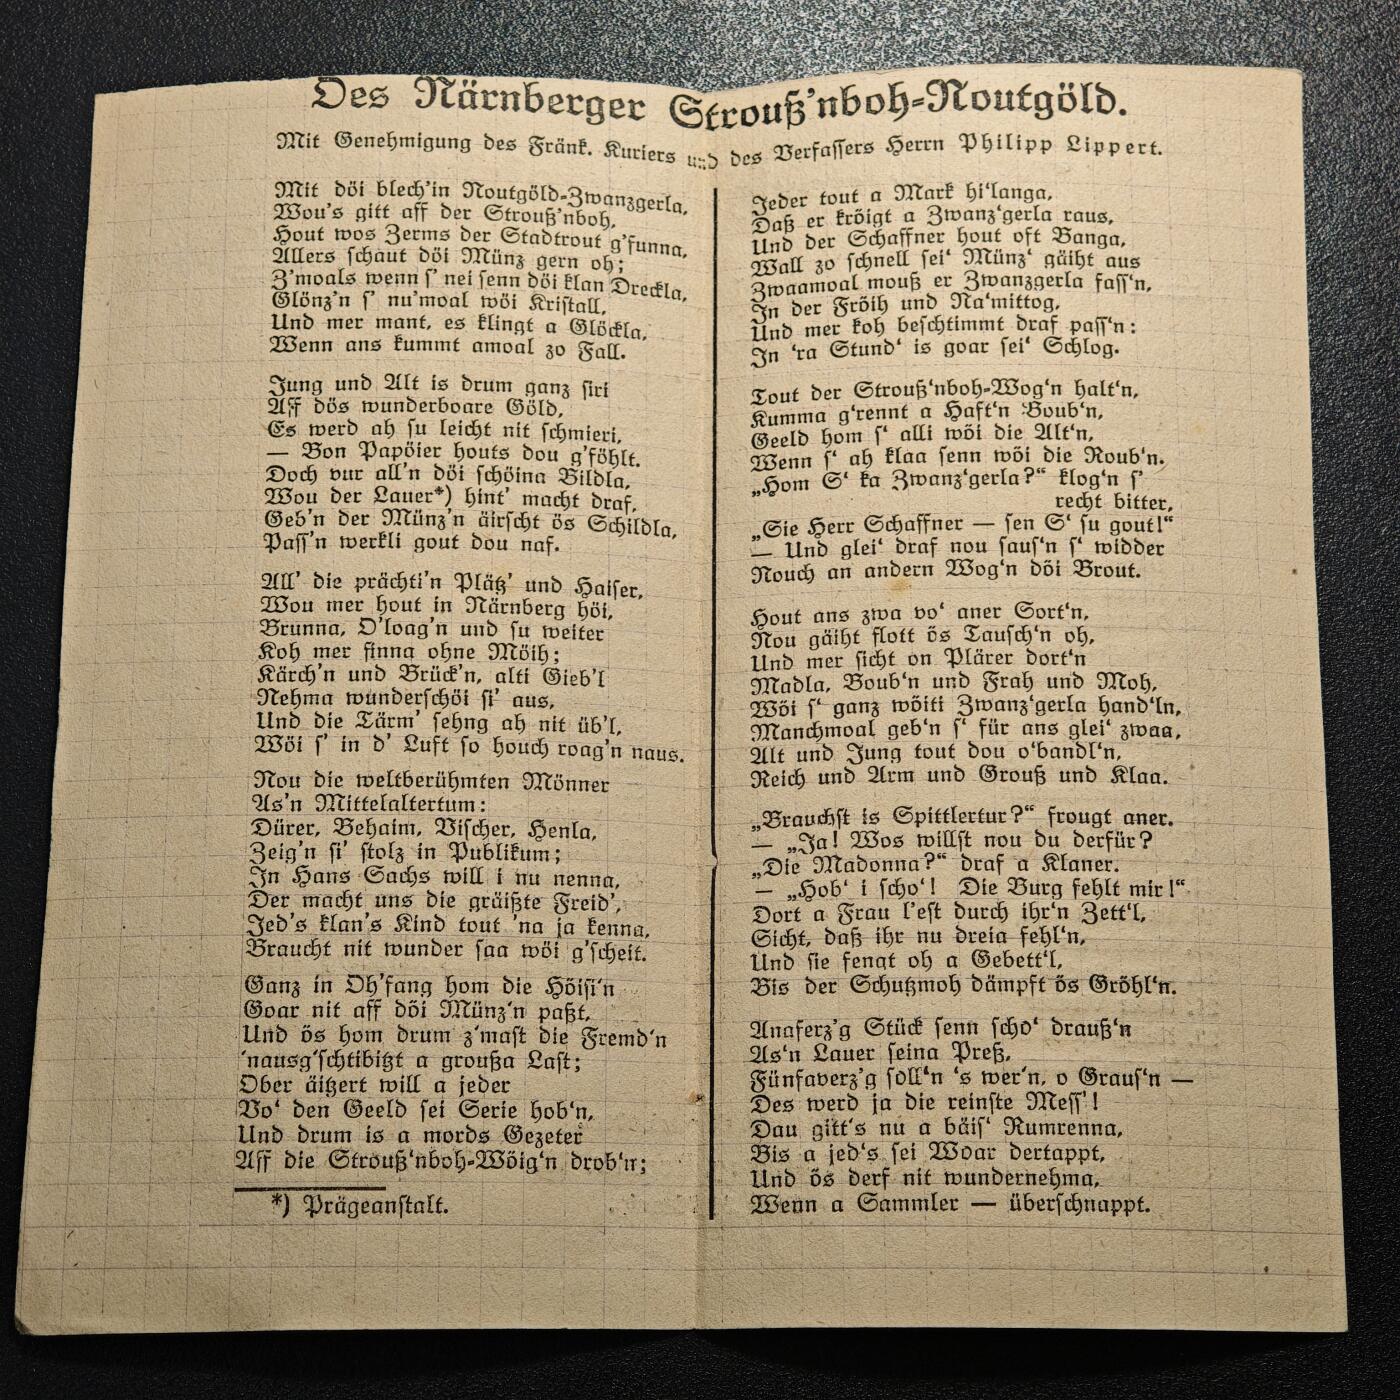 Des Närnberger Strouß'nboh-Noutgöld.
Mit Genehmigung des Fränk. Kuriers und des Verfassers Herrn Philipp Lippert.
Mit döi blech'in Noutgöld-Zwanzgerla,
Wou's gitt aff der Strouß'nboh,
Hout wos Zerms der Stadtrout g'funna,
Allers schaut döi Münz gern oh;
Z'moals wenn s' nei senn döi klan Dreckla,
Glönz'n s' nu'moal wöi Kristall,
Und mer mant, es klingt a Glöckla,
Wenn ans kummt amoal zo Fall.
Jung und Alt is drum ganz siri
Aff dös wunderboare Göld,
Es werd ah su leicht nit schmieri,
— Von Papöier houts dou g'föhlt.
Doch vur all'n döi schöina Bildla,
Wou der Lauer*) hint' macht draf,
Geb'n der Münz'n äirscht ös Schildla,
Pass'n werkli gout dou naf.
All' die prächti'n Plätz' und Haiser,
Wou mer hout in Närnberg höi,
Brunna, O'loag'n und su weiter
Koh mer finna ohne Möih;
Kärch'n und Brück'n, alti Gieb'l
Nehma wunderschöi si' aus,
Und die Tärm' sehng ah nit üb'l,
Wöi s' in d' Luft so houch roag'n naus.
Nou die weltberühmten Mönner
As'n Mittelaltertum:
Dürer, Behaim, Vischer, Henla,
Zeig'n si' stolz in Publikum;
In Hans Sachs will i nu nenna,
Der macht uns die gräißte Freid',
Jed's klan's Kind tout 'na ja kenna,
Braucht nit wunder saa wöi g'scheit.
Ganz in Oh'fang hom die Höisi'n
Goar nit aff döi Münz'n paßt,
Und ös hom drum z'mast die Fremd'n
'nausg'schtibitzt a groußa Last;
Ober äitzert will a jeder
Vo' den Geeld sei Serie hob'n,
Und drum is a mords Gezeter
Aff die Strouß'nboh-Wöig'n drob'n;
*) Prägeanstalt.
Jeder tout a Mark hi'langa,
Daß er kröigt a Zwanz'gerla raus,
Und der Schaffner hout oft Banga,
Wall zo schnell sei' Münz' gäiht aus
Zwaamoal mouß er Zwanzgerla fass'n,
In der Fröih und Na'mittog,
Und mer koh beschtimmt draf pass'n:
In 'ra Stund' is goar sei' Schlog.
Tout der Strouß'nboh-Wog'n halt'n,
Kumma g'rennt a Haft'n Boub'n,
Geeld hom s' alli wöi die Alt'n,
Wenn s' ah klaa senn wöi die Roub'n.
„Hom S' ka Zwanz'gerla?“ klog'n s'
recht bitter,
„Sie Herr Schaffner — sen S' su gout!“
— Und glei' draf nou saus'n s' widder
Nouch an andern Wog'n döi Brout.
Hout ans zwa vo' aner Sort'n,
Nou gäiht flott ös Tausch'n oh,
Und mer sicht on Plärer dort'n
Madla, Boub'n und Frah und Moh,
Wöi s' ganz wöiti Zwanz'gerla hand'ln,
Manchmoal geb'n s' für ans glei' zwaa,
Alt und Jung tout dou o'bandl'n,
Reich und Arm und Grouß und Klaa.
„Brauchst is Spittlertur?“ frougt aner.
— „Ja! Wos willst nou du derfür?
„Die Madonna?“ draf a Klaner.
— „Hob' i scho'! Die Burg fehlt mir!“
Dort a Frau l'est durch ihr'n Zett'l,
Sicht, daß ihr nu dreia fehl'n,
Und sie fengt oh a Gebett'l,
Bis der Schutzmoh dämpft ös Gröhl'n.
Anaferz'g Stück senn scho' drauß'n
As'n Lauer seina Preß,
Fünfaverz'g söll'n 's wer'n, o Graus'n —
Des werd ja die reinste Mess'!
Dau gitt's nu a bäis' Rumrenna,
Bis a jed's sei Woar dertappt,
Und ös derf nit wundernehma,
Wenn a Sammler — überschnappt.